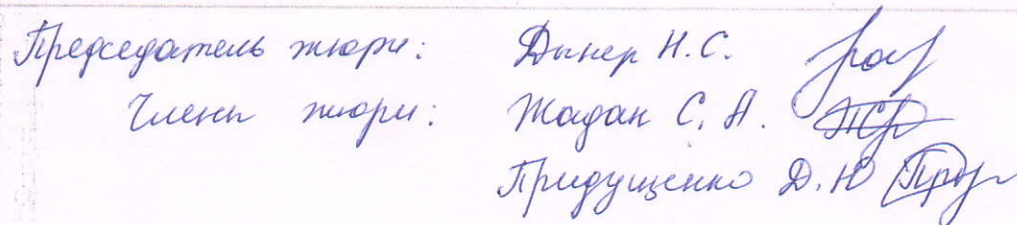 Председатель жюри: Дынер Н.С.
Члены жюри: Жадан С.А.
Придущенко Д.Ю